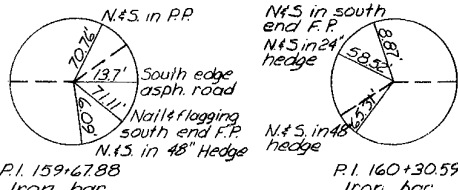 N.&S. in P.P.
70.76
13.7'
South edge
asph. road
7.11'
Nail & flagging
south end F.P.
6.09
N.&S. in 48" Hedge
P.I. 159+67.88
Iron bar
N.&S in south
end F.P.
N.&S in 24"
hedge
8.87'
58.52'
65.31'
N.&S. in 48"
hedge
P.I. 160+30.59
Iron bar